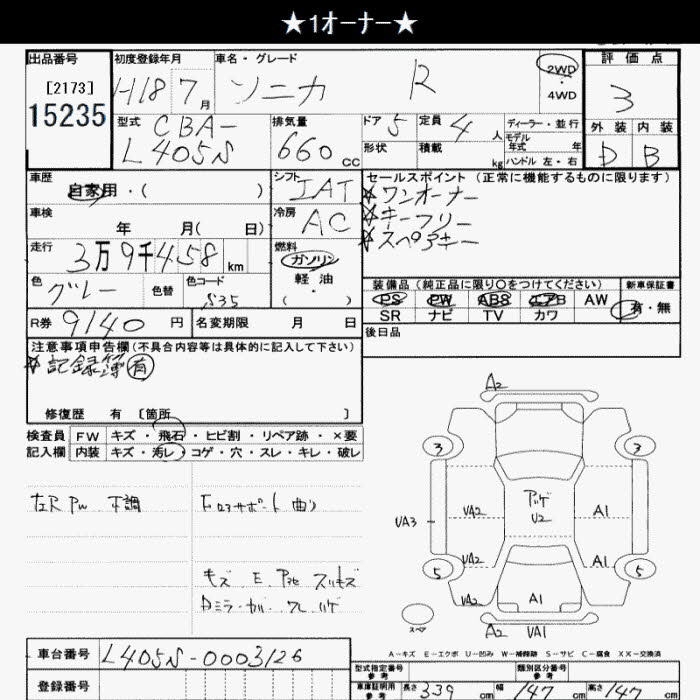 ★1オーナー★
出品番号 初度登録年月 車名・グレード 評価点
[2173]
15235
H18 7月 ソニカ R 2WD ・ 4WD 3
型式 排気量 ドア 5 定員 4人 ディーラー・並行 外装 内装
CBA-
L405S 660cc 形状 積載 kg モデル年式 年 ハンドル 左・右 D B
車歴 自家用・( ) シフト IAT セールスポイント (正常に機能するものに限ります)
☆ワンオーナー
車検 年 月( 日) 冷房 AC ☆キーフリー
☆スペアキー
走行 3万9千458km 燃料 ガソリン
軽油
・( )
色 グレー 色替 色コード S35 装備品 (純正品に限り○をつけてください) 新車保証書
PS PW ABS エアB AW 有・無
SR ナビ TV カワ
R券 9140円 名変期限 月 日 後日品
注意事項申告欄(不具合内容等は具体的に記入して下さい)
☆記録簿 有
修復歴 有 [箇所 ]
検査員 FW キズ・飛石・ヒビ割・リペア跡・×要
記入欄 内装 キズ・汚レ・コゲ・穴・スレ・キレ・破レ
左R PW 不調 Fロアサポート 曲り
キズ、E、Pセ スリキズ
Dミラー・カバー ワレ ハゲ
A2
3 3
アハゲ
U2
UA2 A1
UA3
UA2 A1
5 5
UA2 A1
スペア A2 UA1
A-キズ E-エクボ U-凹み W-補修跡 S-サビ C-腐食 XX-交換済
車台番号 L405S-0003126
登録番号
型式指定番号 参考 類別区分番号 参考
車庫証明用 参考 長さ 339cm 幅 147cm 高さ 147cm